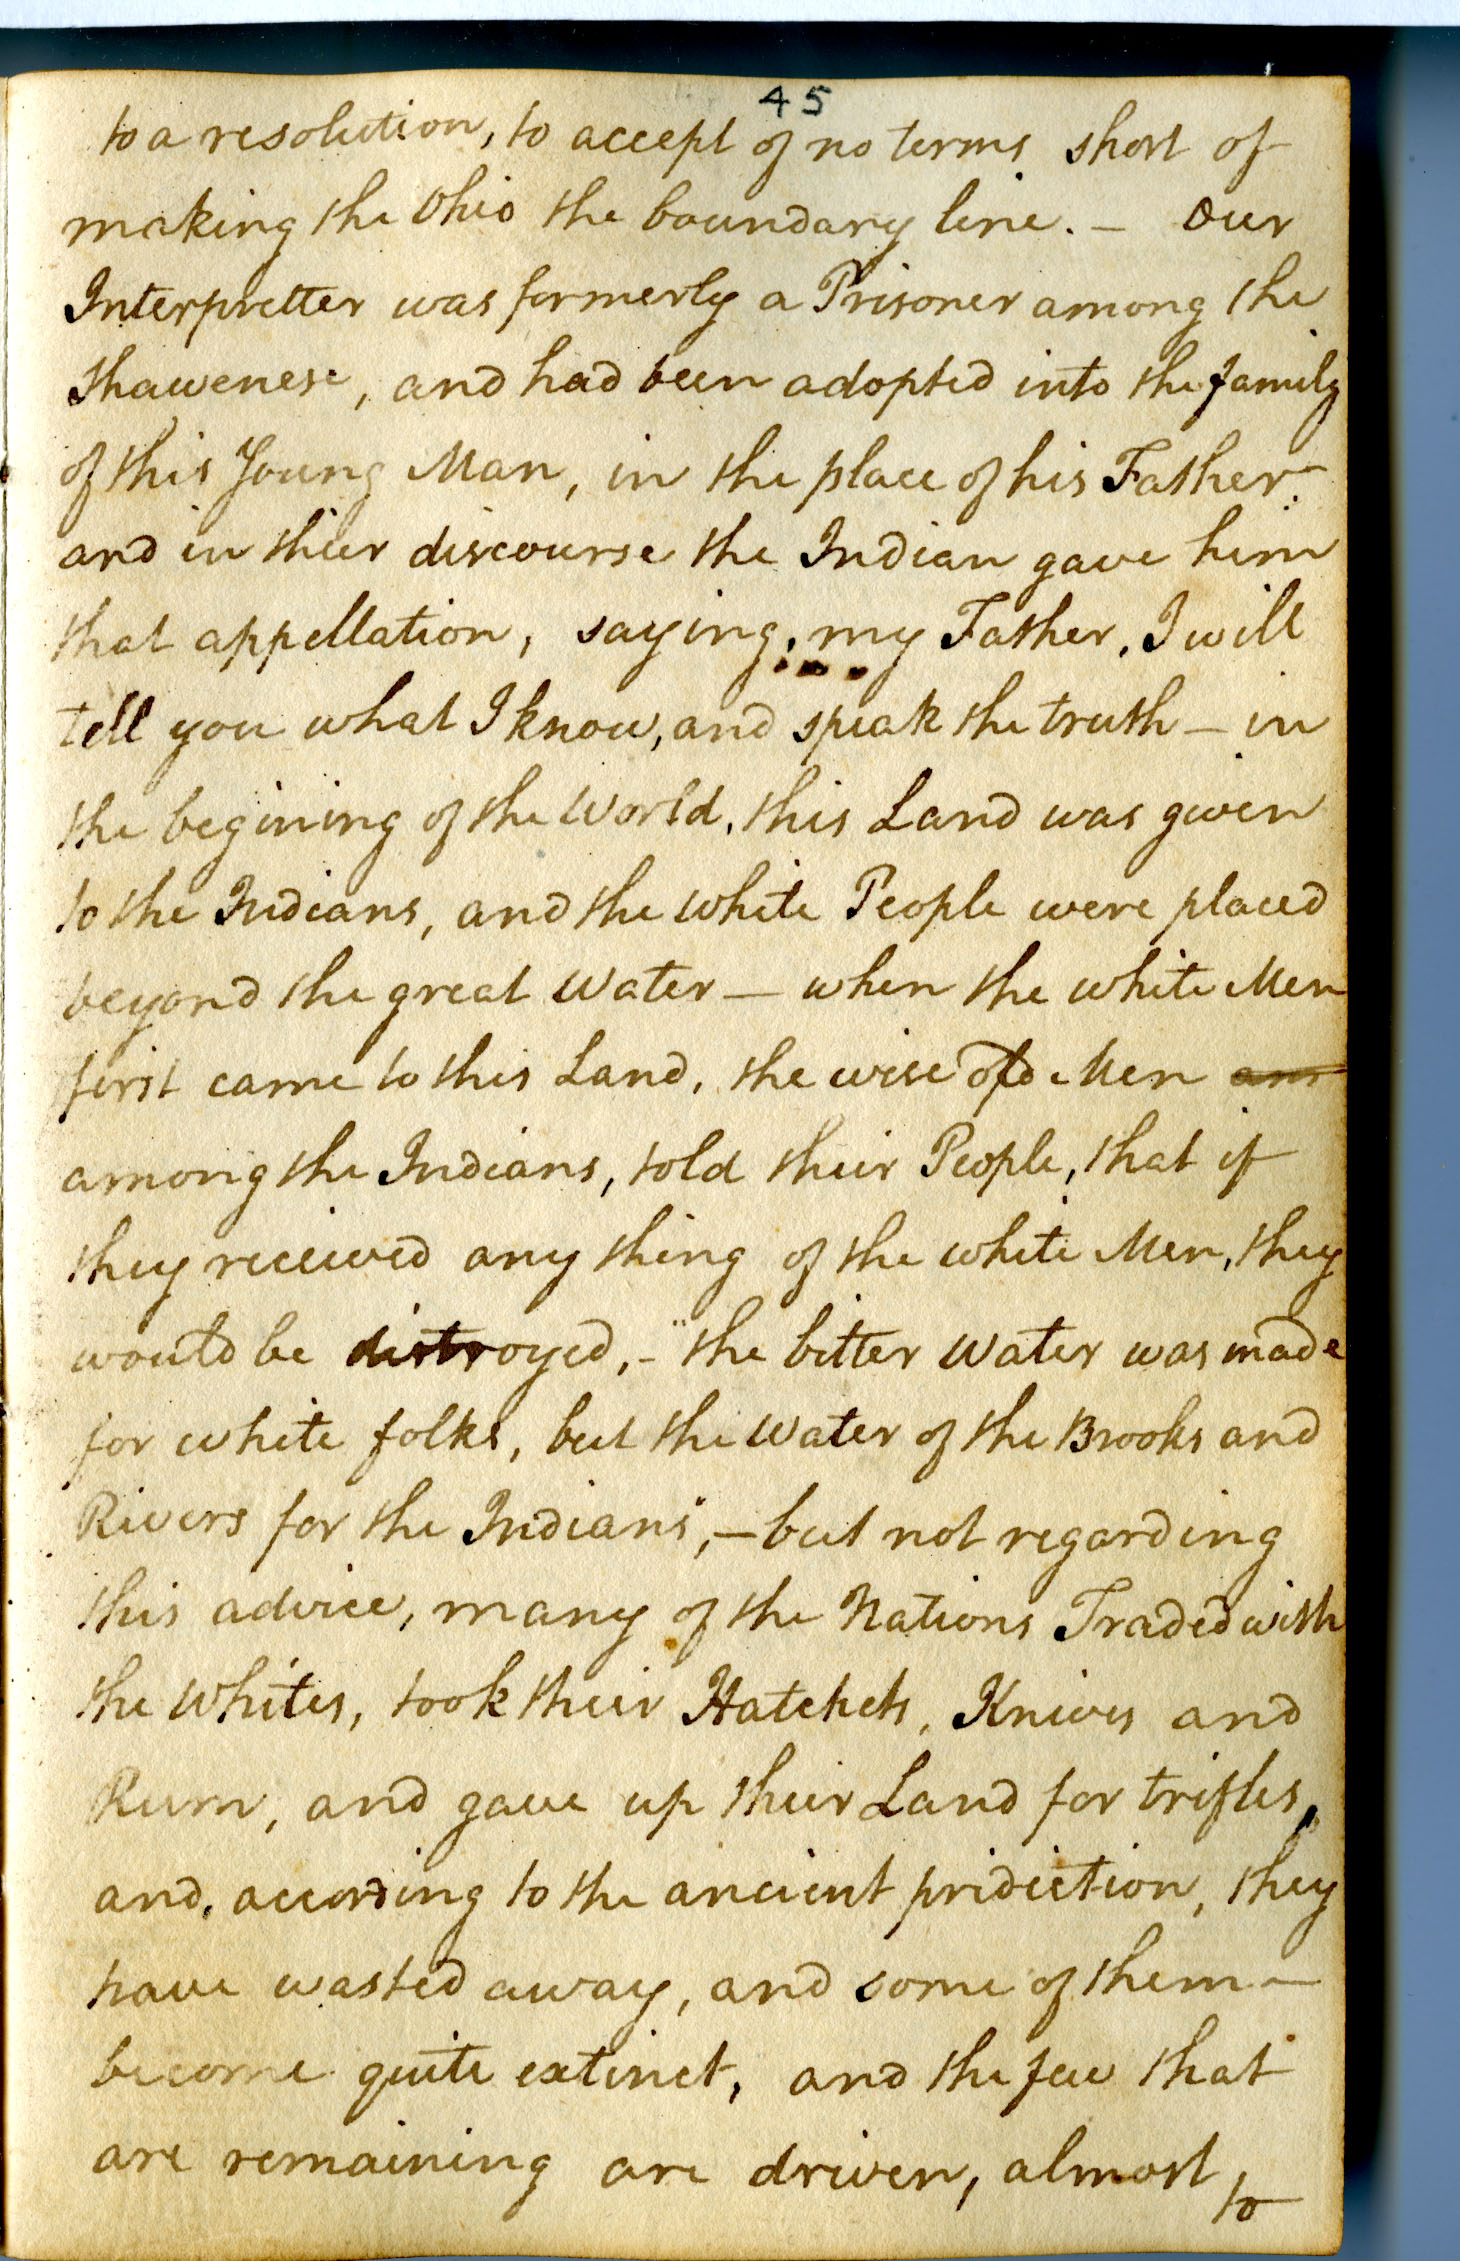 45
to a resolution, to accept of no terms short of
making the Ohio the boundary line. — Our
Interpretter was formerly a Prisoner among the
Shawenese, and had been adopted into the family
of this Young Man, in the place of his Father —
and in thier discourse the Indian gave him
that appellation, saying, my Father, I will
tell you what I know, and speak the truth — in
the begining of the World, this Land was given
to the Indians, and the white People were placed
beyond the great Water — when the white Men
first came to this Land, the wise old Men am
among the Indians, told their People, that if
they received any thing of the white Men, they
would be distroyed, — "the bitter Water was made
for white folks, but the Water of the Brooks and
Rivers for the Indians", — but not regarding
this advice, many of the Nations Traded with
the Whites, took their Hatchets, Knives and
Rum, and gave up their Land for trifles,
and, according to the ancient pridiction, they
have wasted away, and some of them —
become quite extinct, and the few that
are remaining are driven, almost
to